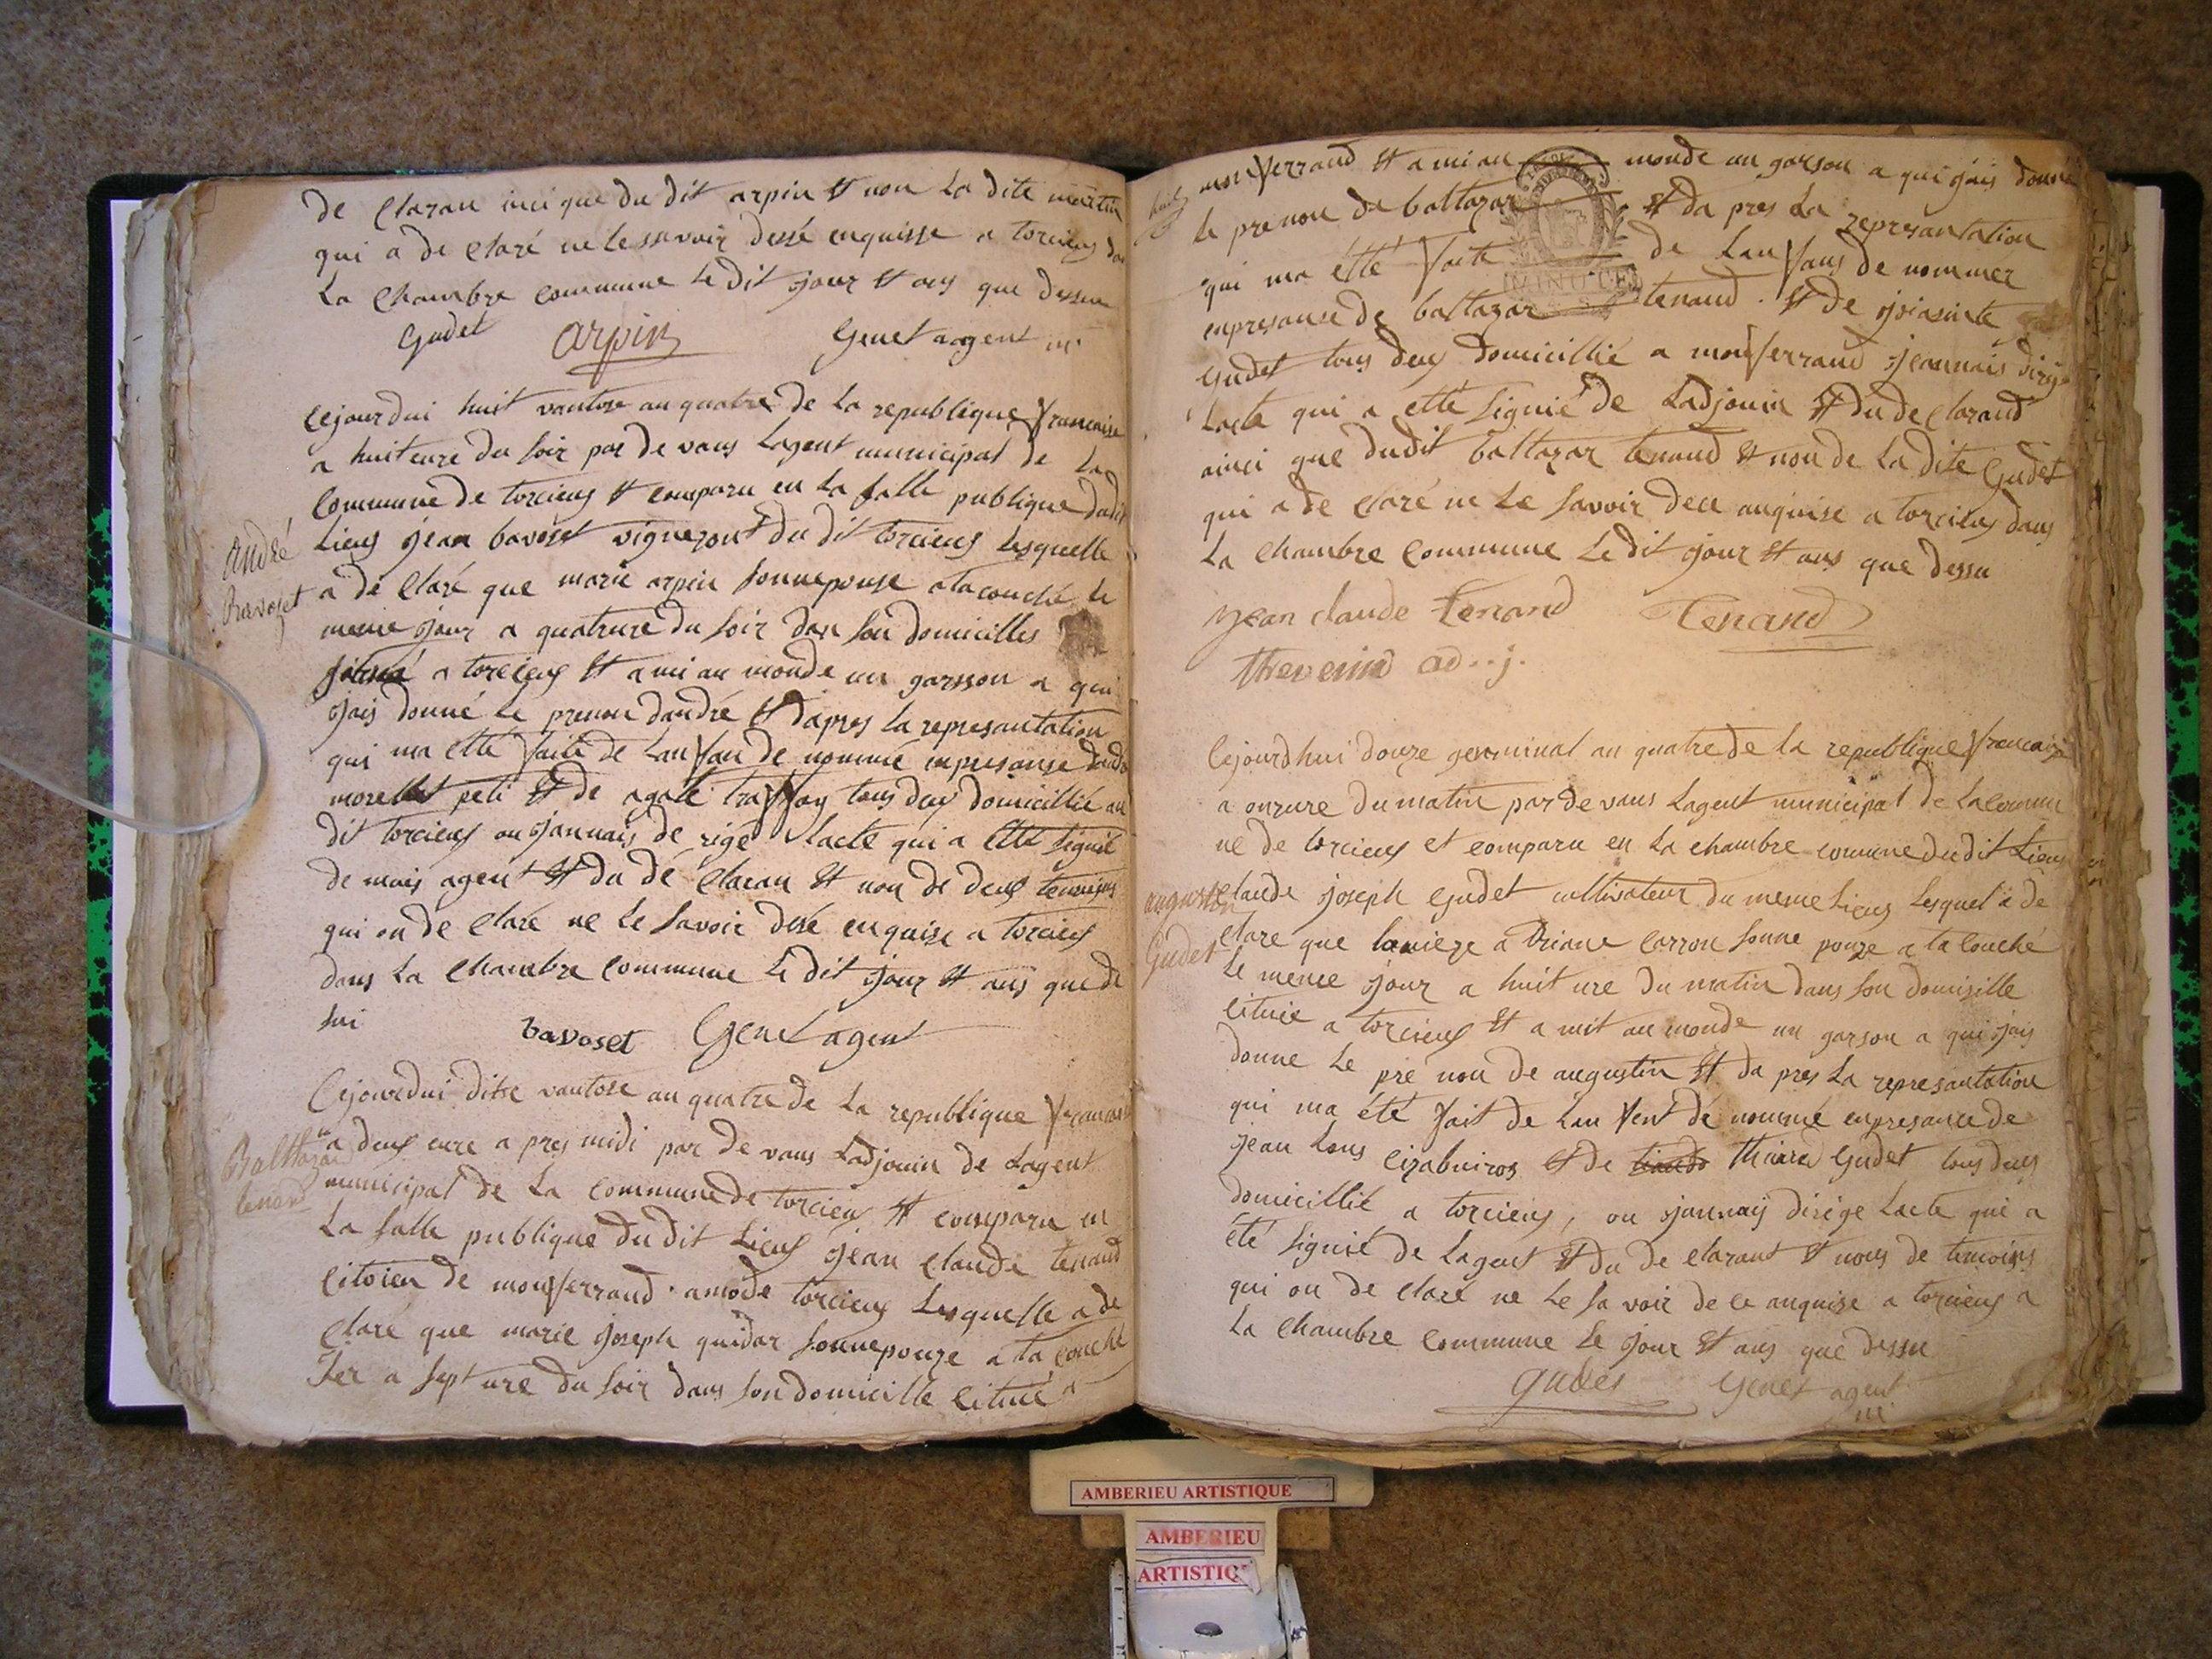 de Claran inci que du dit arpin et non La dite martin
qui a de Claré ne le savoir dessé enquisse a torcieus dans
La Chambre commune Le dit jour et ans que dessus
Gudet arpin Genet agent m
Cejourdui huit vantose an quatre de La republique francaise
a huit eure du soir par de vans Lagent municipal de La
Commune de torcieus et comparu en La salle publique dudit
Lieus jean bavoset vigneront du dit torcieus lesquelle
André
Bavoset
a de Claré que marie arpin sonnepouse a ta couché le
meme jour a quatrure du soir dan son domicilles
a torcieus et a mi au monde un garsson a qui
jais donné Le prenon dandré et dapres La represantation
qui ma etté faite de Lanfan de nommé enpresanse
morellet peti et de agate traffay tous deux domicillié au
dit torcieus ou jannais de rigé Lacte qui a etté signié
de mois agent et du dé Claran et non de deus temoins
qui on de Claré ne Le Savoir desé enquise a torcieus
dans La Chambre Commune Le dit jour et ans que de
sui
bavoset Genet agent
Cejourdui vantose an quatre de La republique francaise
a deus eure a pres midi par de vans Ladjouin de Lagent
Balthazar
tenand
municipal de La commune de torcieus et comparu en
La salle publique du dit Lieus jean Claude tenand
Citoien de monferrand amode torcieus Lesquelle a de
Claré que marie joseph guidar sonnepouze a ta couché
Ier a sept ure du soir dans son domicille citué a
monferrand et a mi au monde un garson a qui jais donné
le prenon de baltazar et da pres La represantation
qui ma etté faite de Lanfans de nommer
enpresanse de baltazar tenand et de joiasinte
Gudet tous deus domicillié a monferrand jeannais dirigé
Lacte qui a etté Signié de Ladjouin et du de Clarand
ainci que dudit baltazar tenand et non de La dite Gudet
qui a de Claré ne Le Savoir dece anquise a torcieus dans
La Chambre Commune Le dit jour et ans que dessu
jean claude tenand Tenand
thevenin ad..j.
Cejourdhui douze germinal an quatre de La republique francaise
a onzure du matin par de vans Lagent municipal de La commu
ne de torcieus et comparu en La chambre comune du dit Lieus
augustin
Gudet
claude joseph Gudet cultivateur du meme Lieus Lesquel a de
Clare que a driane Carron sonne pouze a ta Couché
Le meme jour a huit ure du matin dans son domisille
Cituée a torcieus et a mit au monde un garson a qui jais
donne Le pré non de augustin et da pres La represantation
qui ma été fait de Lan fent dé nommé enpresance de
jean Lous et de Gudet tous deus
domicillié a torcieus, ou jannais dirige Lacte qui a
été Signié de Lagent et du de Clarant et nons de temoins
qui on de Claré ne Le sa voir de ce anquise a torcieus a
La Chambre Commune Le jour et ans que dessu
Gudet Genet agent
m
MINUTE
AMBERIEU ARTISTIQUE
AMBERIEU
ARTISTIQ